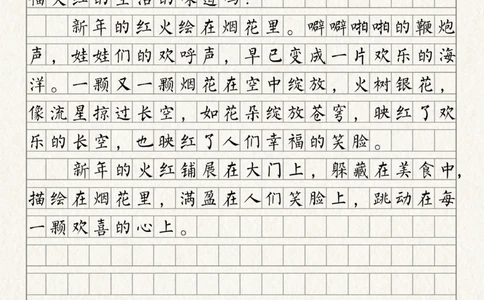 新年的红火绘在烟花里。噼噼啪啪的鞭炮
声，娃娃们的欢呼声，早已变成一片欢乐的海
洋。一颗又一颗烟花在空中绽放，火树银花，
像流星掠过长空，如花朵绽放苍穹，映红了欢
乐的长空，也映红了人们幸福的笑脸。
新年的火红铺展在大门上，躲藏在美食中，
描绘在烟花里，满盈在人们笑脸上，跳动在每
一颗欢喜的心上。